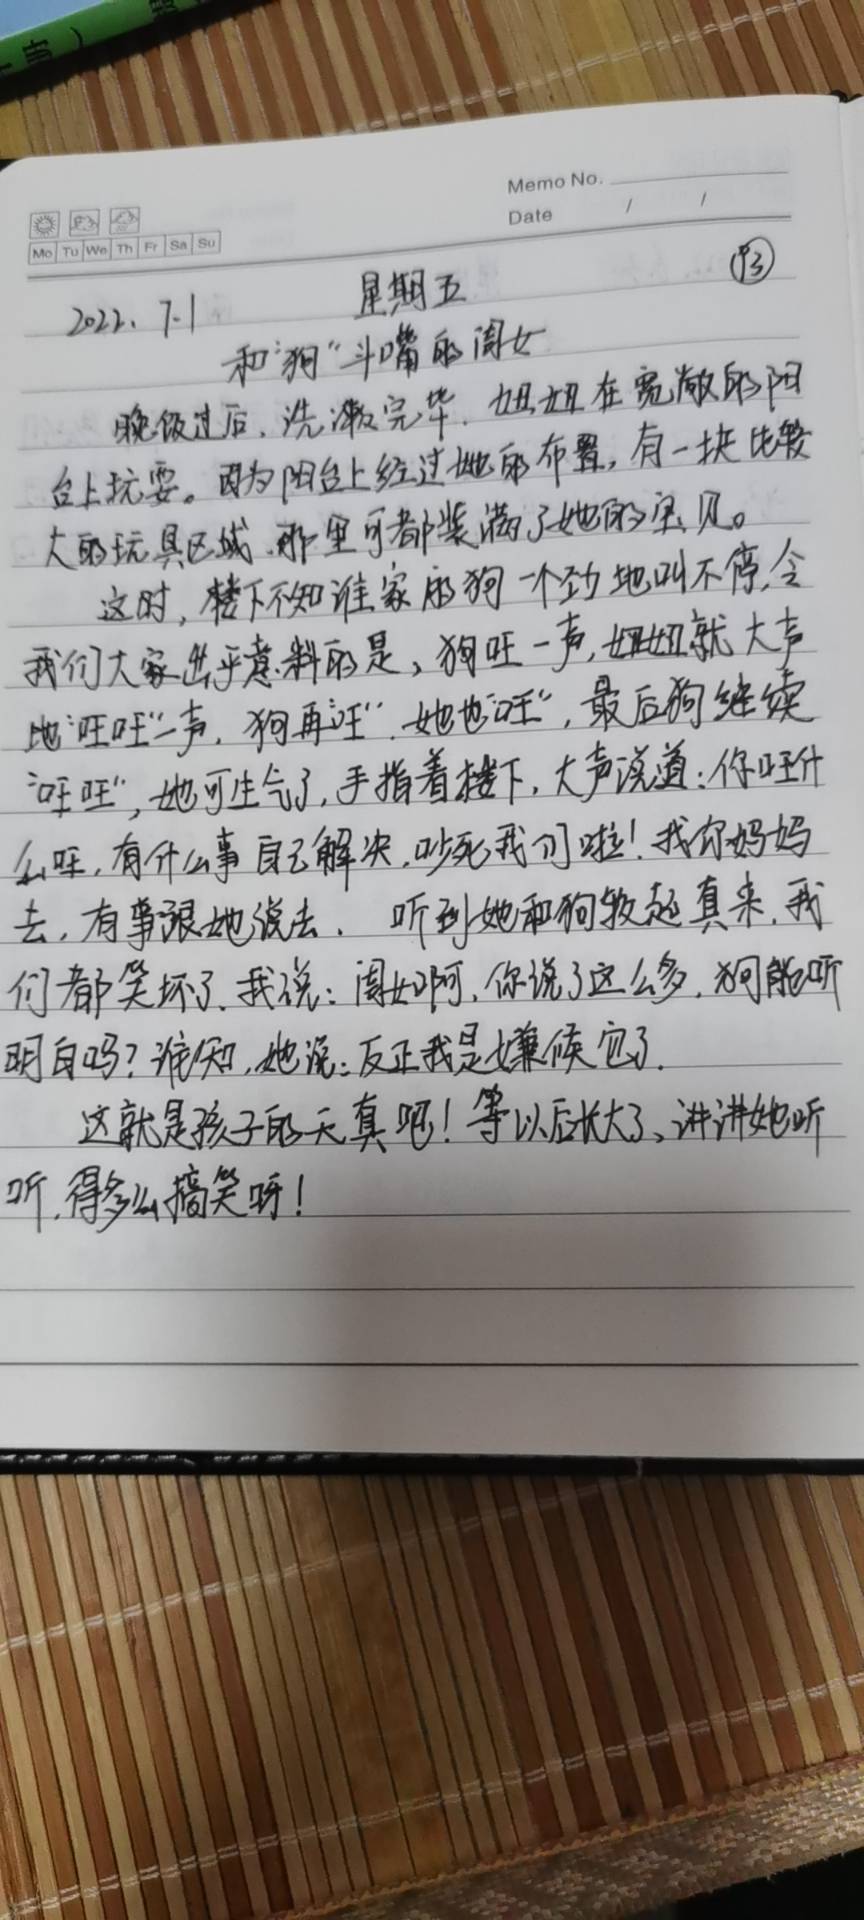 Memo No.
Date / /
Mo Tu We Th Fr Sa Su
93
2022、7.1 星期五
和“狗”斗嘴的闺女
晚饭过后，洗漱完毕，妞妞在宽敞的阳
台上玩耍。因为阳台上经过她的布置，有一块比较
大的玩具区域，那里可都装满了她的宝贝。
这时，楼下不知谁家的狗一个劲地叫不停，令
我们大家出乎意料的是，狗旺一声，妞妞就大声
地“旺旺”一声，狗再“旺”，她也“旺”，最后狗继续
“旺旺”，她可生气了，手指着楼下，大声说道：你旺什
么旺，有什么事自己解决，吵死我们啦！找你妈妈
去，有事跟她说去． 听到她和狗较起真来，我
们都笑坏了，我说：闺女啊，你说了这么多，狗能听
明白吗？谁知，她说：反正我是嫌候它了．
这就是孩子的天真吧！等以后长大了、讲讲她听
听，得多么搞笑呀！